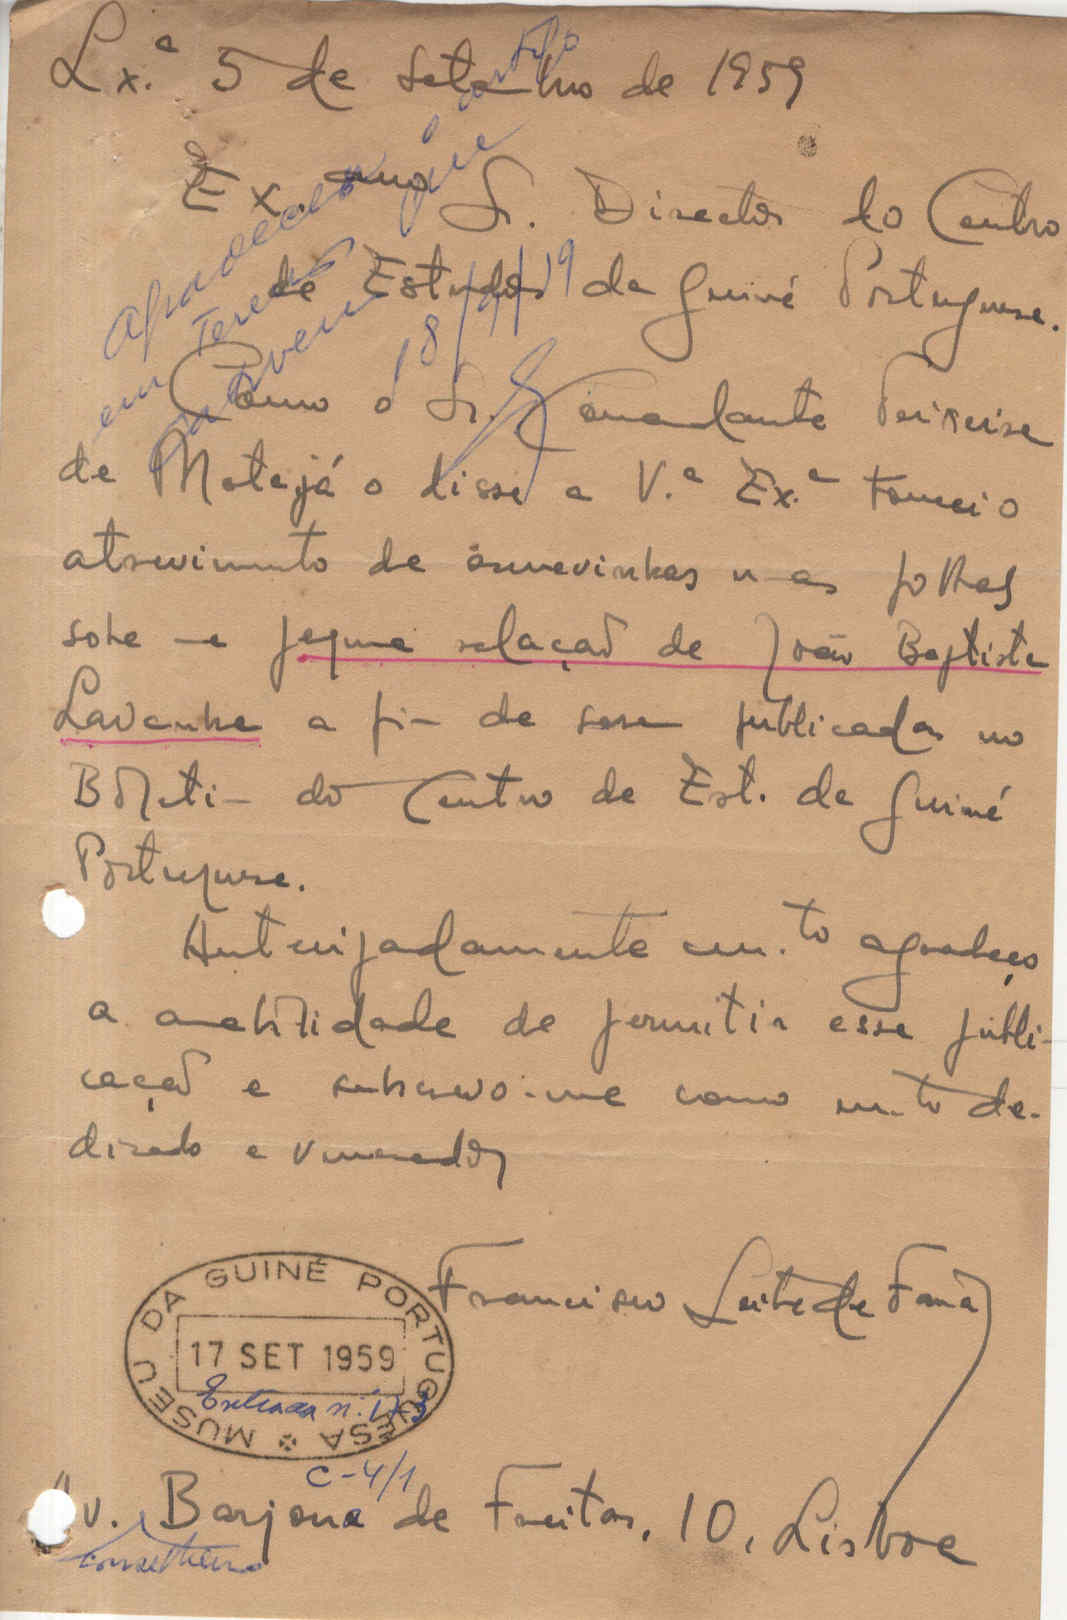 Lx.ª 5 de Setembro de 1959
Ex.mo Sr. Director do Centro
de Estudos da Guiné Portuguesa.
agradecer
que
18/9/59
Como o Sr. Comandante Teixeira
de Mota já o disse a V.ª Ex.ª tomei o
atrevimento de as folhas
sobre a pequena relação de João Baptista
Lavanha a fim de serem publicadas no
Boletim do Centro de Est. da Guiné
Portuguesa.
Antecipadamente m.to agradeço
a amabilidade de permitir essa publi-
cação e subscrevo-me como m.to de-
dicado e venerador
Francisco Leite de Faria
MUSEU DA GUINÉ PORTUGUESA
17 SET 1959
Entrada n.
C-4/1
Av. Barjona de Freitas, 10, Lisboa
Conselheiro